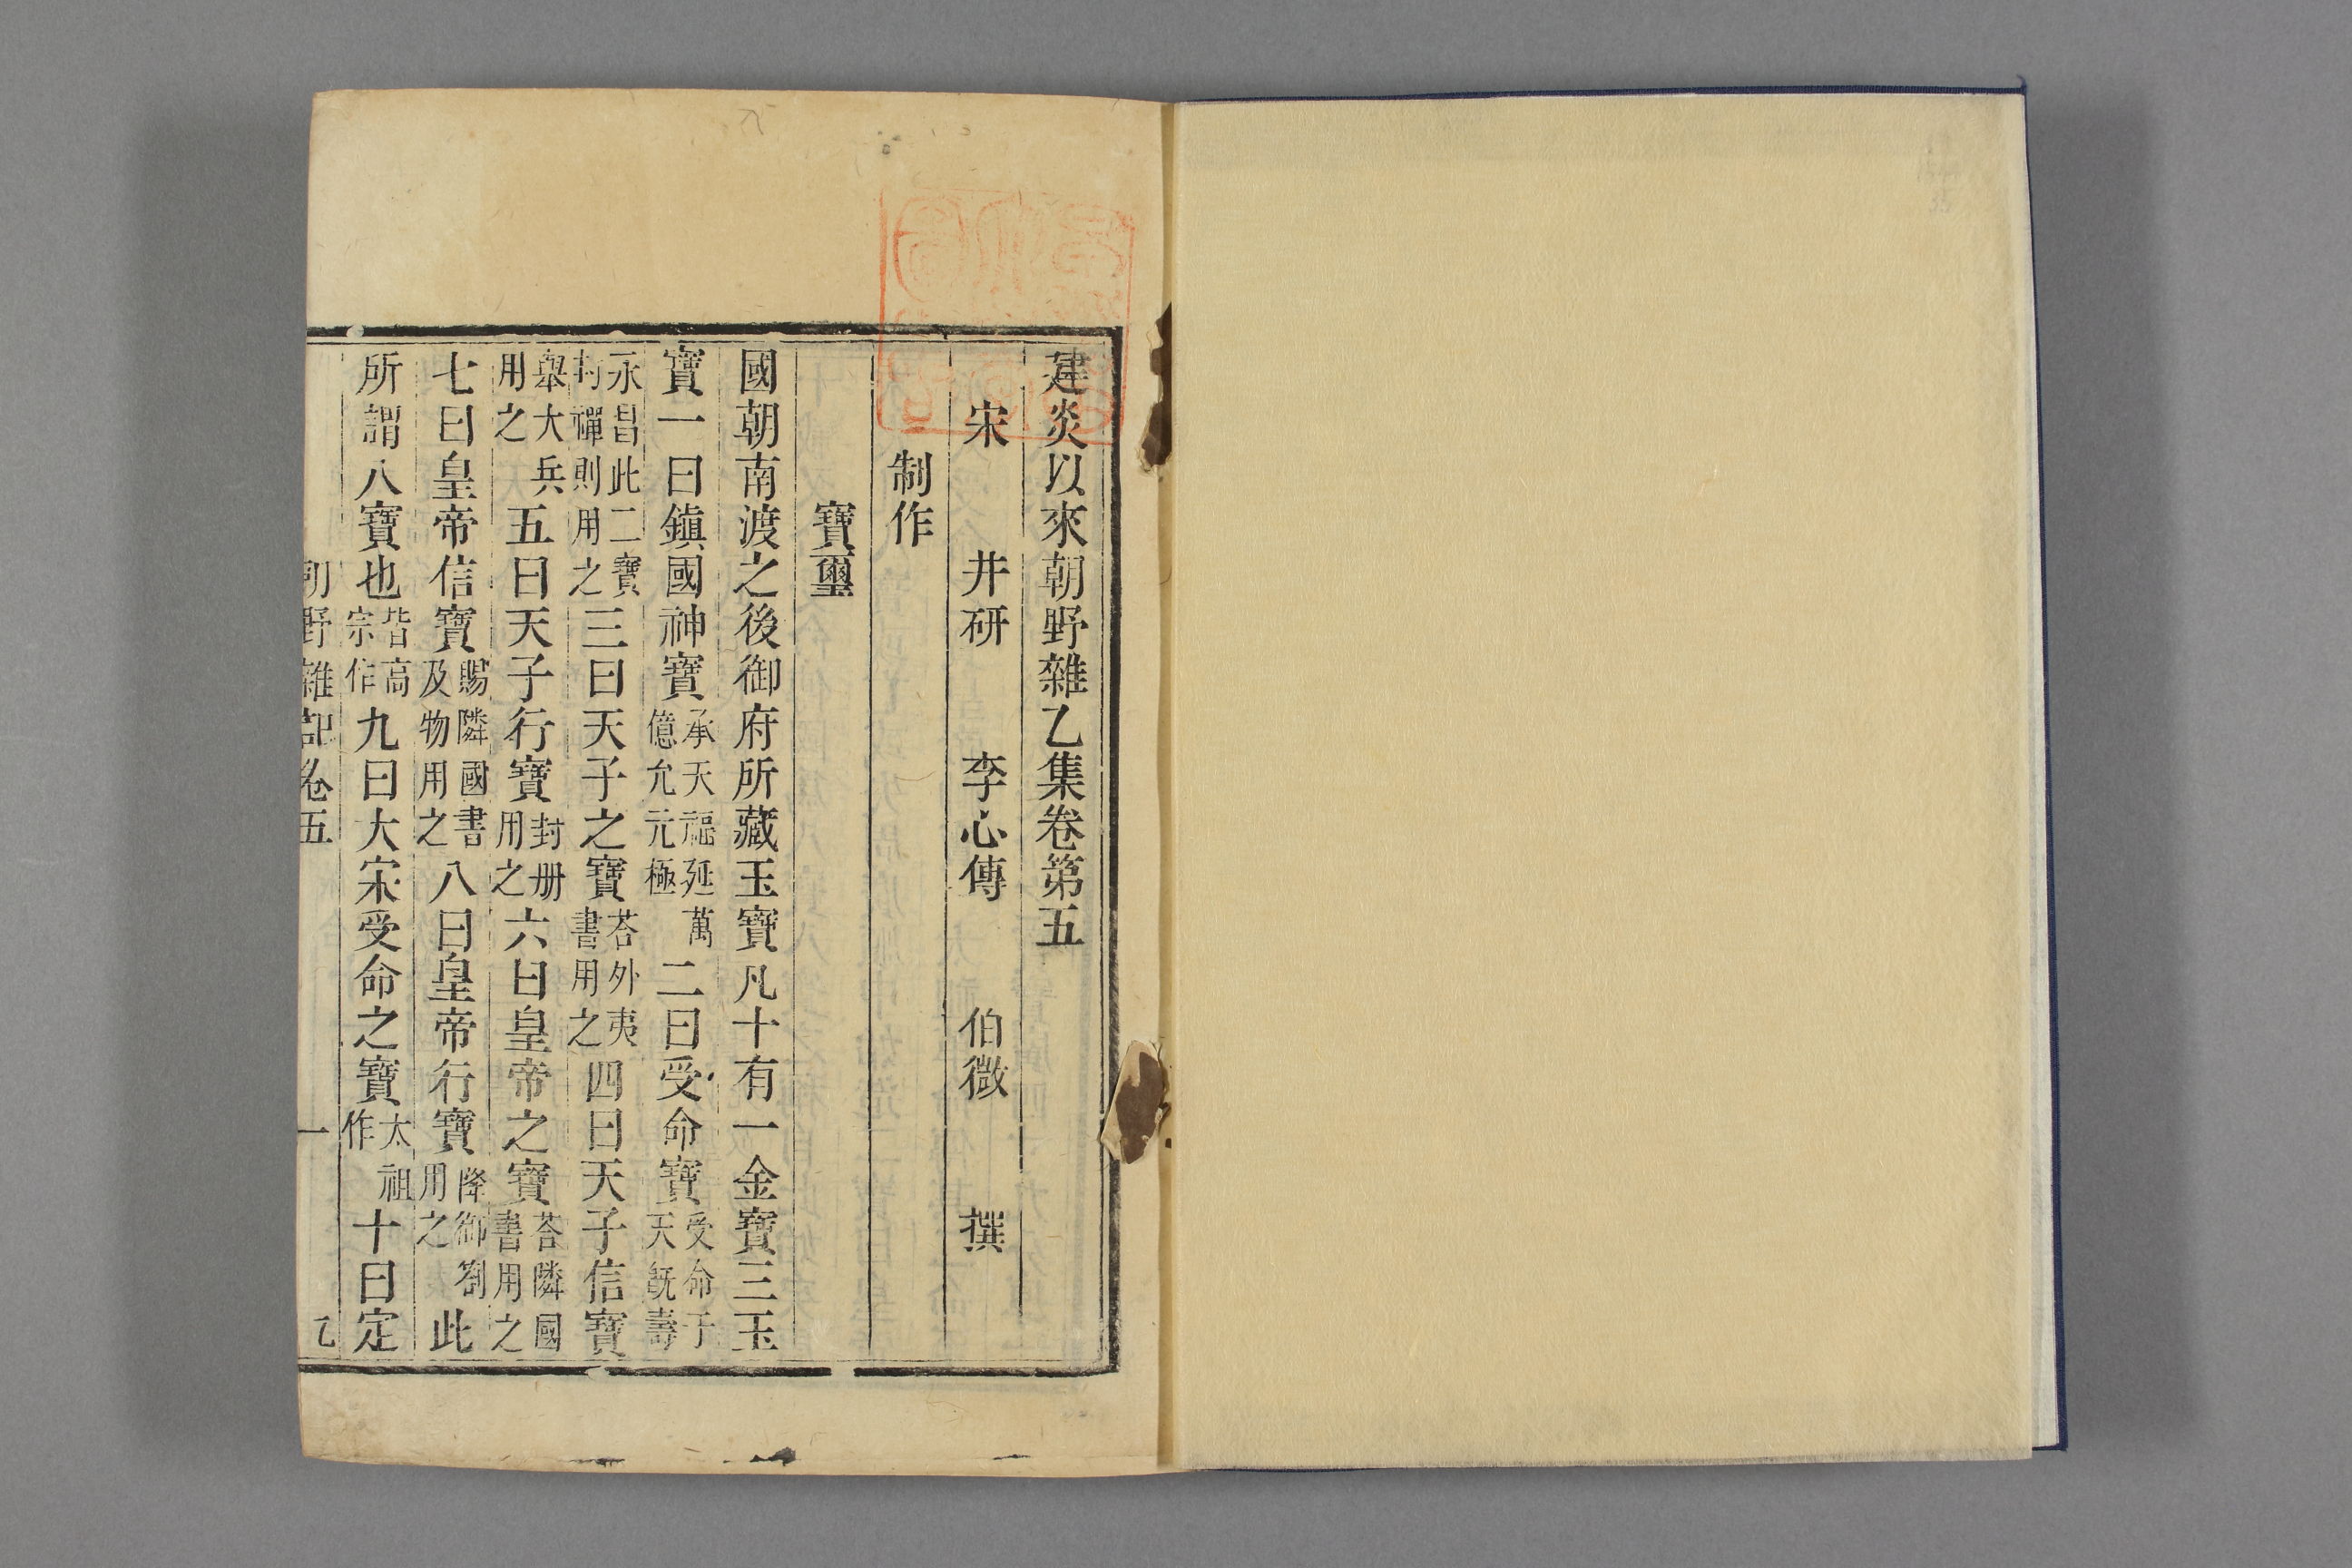 建炎以來朝野雜乙集卷第五
宋 井研 李心傳 伯微 撰
制作
寶璽
國朝南渡之後御府所藏玉寶凡十有一金寶三玉
寶一曰鎮國神寶承天福延萬億允元極二曰受命寶受命于天旣壽
永昌此二寶封禪則用之三曰天子之寶荅外夷書用之四曰天子信寶
舉大兵用之五曰天子行寶封册用之六曰皇帝之寶荅隣國書用之
七曰皇帝信寶賜隣國書及物用之八曰皇帝行寶降御劄用之此
所謂八寶也皆高宗作九曰大宋受命之寶太祖作十曰定
朝野雜記卷五 一 乙